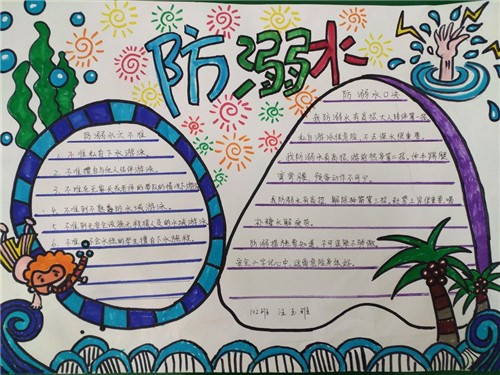 防溺水
防溺水六不准
1、不准私自下水游泳。
2、不准擅自与他人结伴游泳。
3、不准在无家长或老师的带队的情况下游泳
4、不准到不熟悉的水域游泳。
5、不准到无安全设施无救援人员的水域游泳
6、不准不会水性的学生擅自下水施救。
防溺水口决
我防溺水有高招,大人陪伴第一招,
私自游泳很危险,不去深水很重要。
我防溺水有高招,游前热身第二招,伸手踢腿
弯弯腰,预备动作不可少。
我防溺水有高招,解除抽筋第三招,
补糖水解疲劳。
防溺措施要知道,不可逞强不骄傲,
安全二字记心中,
102班